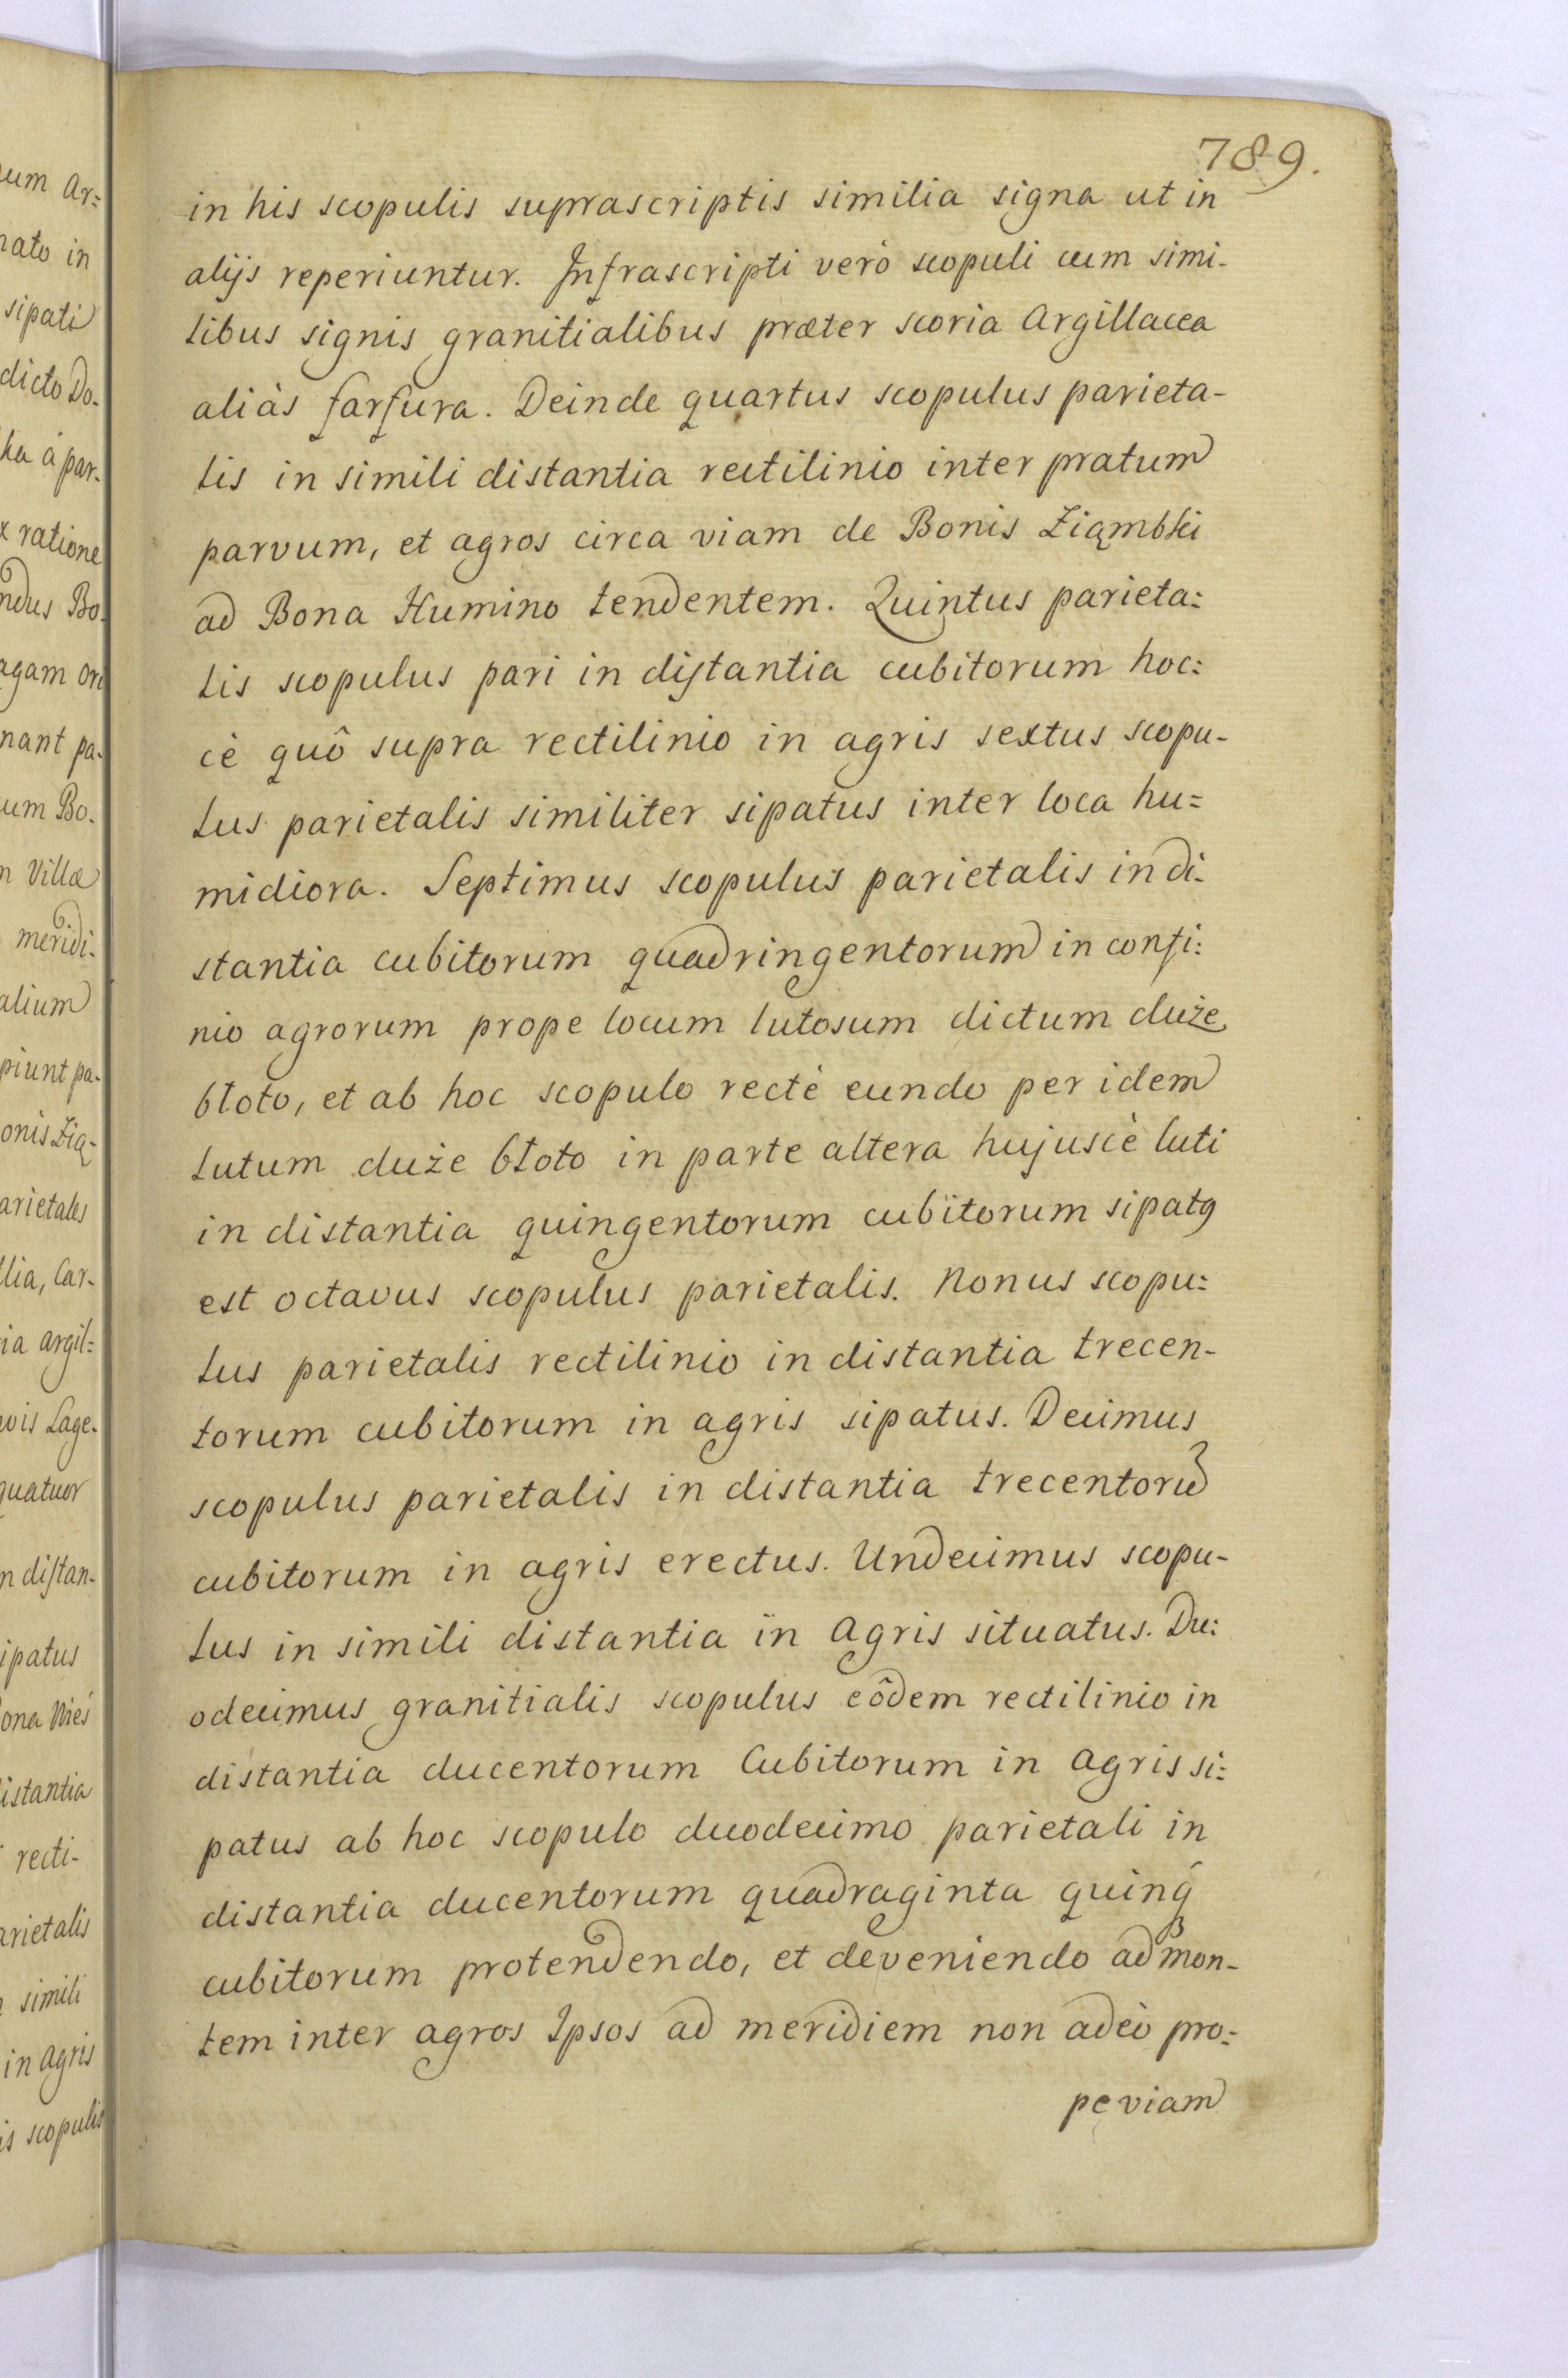 789.
in his scopulis suprascriptis similia signa ut in
alijs reperiuntur. Infrascripti verò scopuli cum simi-
libus signis granitialibus præter scoria Argillacea
aliàs farfura. Deinde quartus scopulus parieta-
lis in simili distantia rectilinio inter pratum
parvum, et agros circa viam de Bonis Ziąmbki
ad Bona Humino tendentem. Quintus parieta:
lis scopulus pari in distantia cubitorum hoc:
cè quô supra rectilinio in agris sextus scopu-
lus parietalis similiter sipatus inter loca hu=
midiora. Septimus scopulus parietalis in di-
stantia cubitorum quadringentorum in confi:
nio agrorum prope locum lutosum dictum duże
błoto, et ab hoc scopulo rectè eundo per idem
lutum duże błoto in parte altera hujuscè luti
in distantia quingentorum cubitorum sipatq
est octavus scopulus parietalis. Nonus scopu:
lus parietalis rectilinio in distantia trecen-
torum cubitorum in agris sipatus. Decimus
scopulus parietalis in distantia trecentorũ
cubitorum in agris erectus. Undecimus scopu-
lus in simili distantia in Agris situatus. Du:
odecimus granitialis scopulus eôdem rectilinio in
distantia ducentorum Cubitorum in Agris si:
patus ab hoc scopulo duodecimo parietali in
distantia ducentorum quadraginta quinq́
cubitorum protendendo, et deveniendo ad mon-
tem inter agros Ipsos ad meridiem non adeò pro:
pe viam